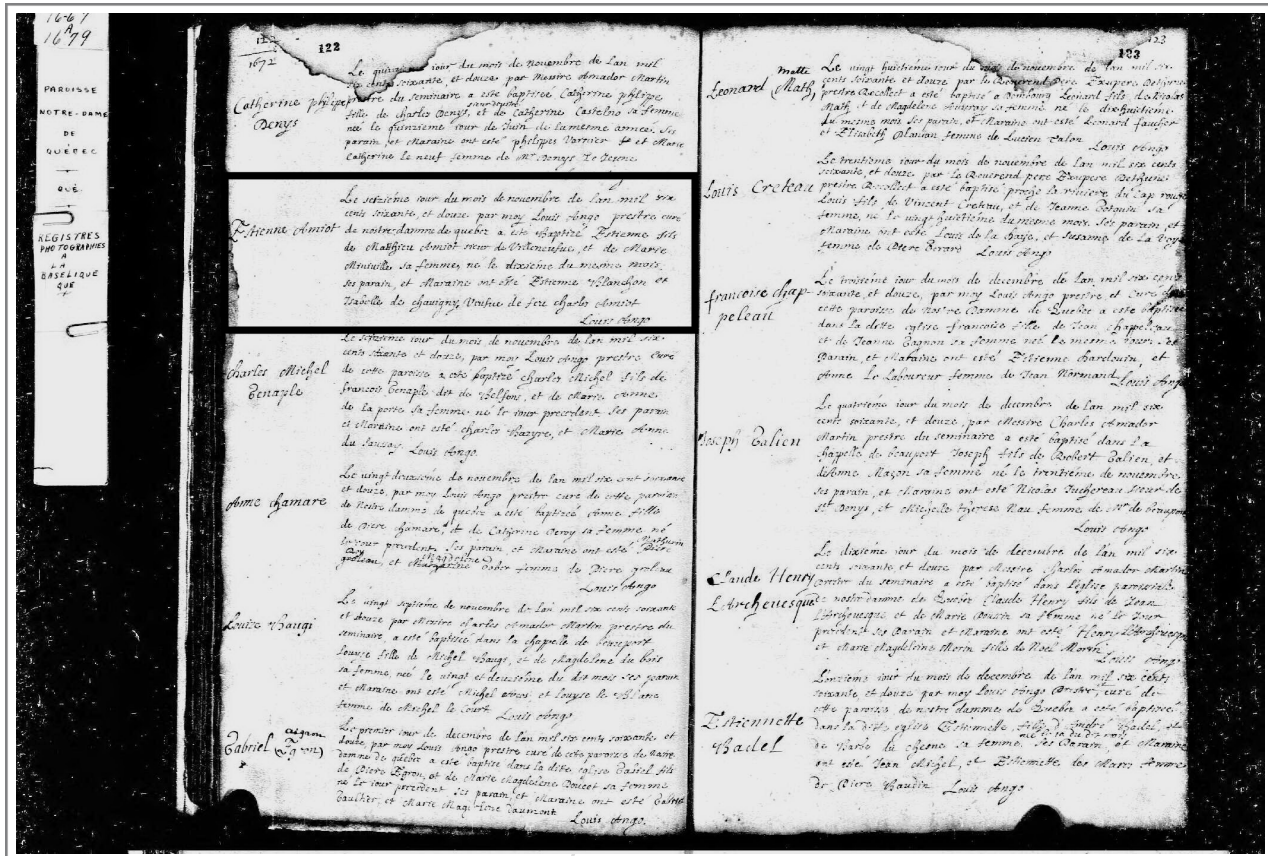 1667
A
1679
PAROISSE
NOTRE-DAME
DE
QUÉBEC
QUÉ
REGISTRES
PHOTOGRAPHIES
A
LA
BASELIQUE
QUE
122
1672
Le iour du mois de Novembre de Lan mil
six cents soixante, et douze par Messire Amador Martin
prestre du seminaire a este baptisee Catherine philipe
Catherine philipe
Denys
fille de charles Denys, et de Catherine Castelno sa femme
née le quinzieme iour de Juin de la mesme annee. Ses
parain, et Maraine ont esté philipes Varnier et Marie
Catherine le neuf femme de Mr Denys Le Jeune
Estienne Amiot
Le seizieme iour du mois de novembre de lan mil six
cents soixante, et douze par moy Louis Ango prestre curé
de nostre damme de quebec a este Baptizé Estienne fils
de Mathieu Amiot sieur de Villeneufue, et de Marie
Miniuille sa femme, ne le dixieme du mesme mois
ses parain, et Maraine ont esté Estienne Blanchon et
Isabelle de chauigny, Veufue de feu charles Amiot
Louis Ango
Charles Michel
Genaple
Le seizieme iour du mois de novembre de lan mil six
cents soixante et douze, par moy Louis Ango prestre curé
de cette paroisse a este baptizé charles Michel fils de
françois Genaple dit de Belfons, et de Marie Anne
de la porte sa femme né le iour precedant, ses parain
et Maraine ont esté charles Bazyre, et Marie Anne
du Sauzay. Louis Ango.
Anne chamare
Le vingt deuxieme de novembre de lan mil six cent soixante
et douze, par moy Louis Ango prestre curé de cette paroisse
de Nostre damme de quebec a este baptizée Anne fille
de Piere chamare, et de Catherine Deroy sa femme né
le iour precedent, Ses parain, et Maraine ont esté Piere
Mathurin
et Magdelene Oder femme de Piere
Louis Ango
Louize Baugi
Le vingt septieme de novembre de lan mil six cents soixante
et douze par Messire charles Amador Martin prestre du
seminaire, a este baptisée dans la chappelle de beauport
Louyse fille de Michel Baugi, et de Magdelene du bois
sa femme, neé le vingt et deuxieme du dit mois ses parain
et Maraine ont esté Michel et Louyse le Blanc
femme de Michel le Court Louis Ango
Gabriel
Le premier iour de decembre de lan mil six cents soixante, et
douze, par moy Louis Ango prestre curé de cete paroisse de Nostre
damme de quebec a este baptisé dans la dite eglise Gabriel fils
de Piere et de Marie Magdelene Doucet sa femme
né le iour precedent ses parain, et Maraine ont esté Gabriel
Gaultier, et Marie Magdelene Gaumont
Louis Ango.
123
123
Leonard Math
Matte
Le vingt huitieme iour du mois de novembre de lan mil six
cents soixante et douze par le Reuerend pere Exupere Dethune
prestre Recollect a esté baptisé a Dombourg Leonard fils de Nicolas
Math et de Magdelene Auuray sa femme né le dixhuitieme
du mesme mois ses parain, et Maraine ont esté Leonard faucher
et Elisabeth femme de Lucien Talon
Louis Ango
Louis Creteau
Le trentieme iour du mois de novembre de lan mil six cents
soixante, et douze par le Reuerend pere Exupere Dethune
prestre Recollect a esté baptisé proche la riuiere du cap rouge
Louis fils de Vincent Creteau, et de Jeanne sa
femme, né le vingt huictieme du mesme mois, Ses parain, et
Maraine ont esté Louis de la haye, et Susanne de La Voye
femme de Piere Louis Ango
francoise chap-
peleau
Le troisieme iour du mois de decembre de lan mil six cents
soixante, et douze, par moy Louis Ango prestre et Curé de
cette paroisse de Nostre Damme de Quebec a este baptisée
dans la dite eglise francoise fille de Jean chapeleau
et de Jeanne Gagnon sa femme né le mesme iour, Ses
Parain, et Maraine ont esté Estienne hardouin, et
Anne Le Laboureur femme de Jean Normand Louis Ango
Joseph Galien
Le quatrieme iour du mois de decembre de lan mil six
cents soixante, et douze, par Messire Charles Amador
Martin prestre du seminaire a este baptisé dans la
chappelle de beauport Joseph fils de Robert Galien, et
d'Isenne Maçon sa femme né le trentieme de novembre,
ses parain, et Maraine ont esté Nicolas Juchereau sieur de
St Denys, et Michelle therese Nau femme de Mr de beauport
Louis Ango
Claude Henry
L'Archeuesque
Le dixieme iour du mois de decembre de lan mil six
cents soixante et douze par Messire Charles Amador Martin
Prestre du seminaire a esté baptisé dans l'eglise paroissiale
de nostre damme de Quebec Claude Henry fils de Jean
L'Archeuesque et de Marie sa femme né le iour
précédent ses Parain et Maraine ont esté Henry L'Archeuesque
et Marie Magdeleine Morin fille de Noel Morin
Louis Ango
Estiennette
Badel
L'onzieme iour du mois de decembre de lan mil six cents
soixante et douze par moy Louis Ango Prestre, curé de
cette paroisse de nostre damme de Quebec a esté baptisée
dans la dite eglise Estiennette fille d'André Badel, et
de Barbe du chesne sa femme, ses Parain, et Maraine
ont esté Jean Michel, et Estiennette des Mares femme
de Piere Baudin Louis Ango